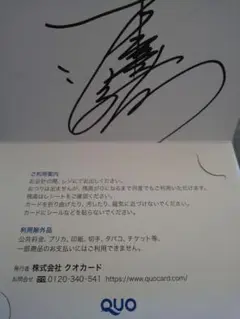 ご利用案内
お会計の際、レジにてお出しください。
おつりは出ませんが、残高が0になるまで何度でもご利用いただけます。
残高はレシートをご確認ください。
カードを折り曲げたり、汚したり、磁気に近づけないでください。
カードにシールなどを貼らないでください。
利用除外品
公共料金、プリカ、印紙、切手、タバコ、チケット等、
一部商品のお支払いにはご利用できません。
発行者 株式会社 クオカード
お問合せ 0120-340-541 https://www.quocard.com/
QUO